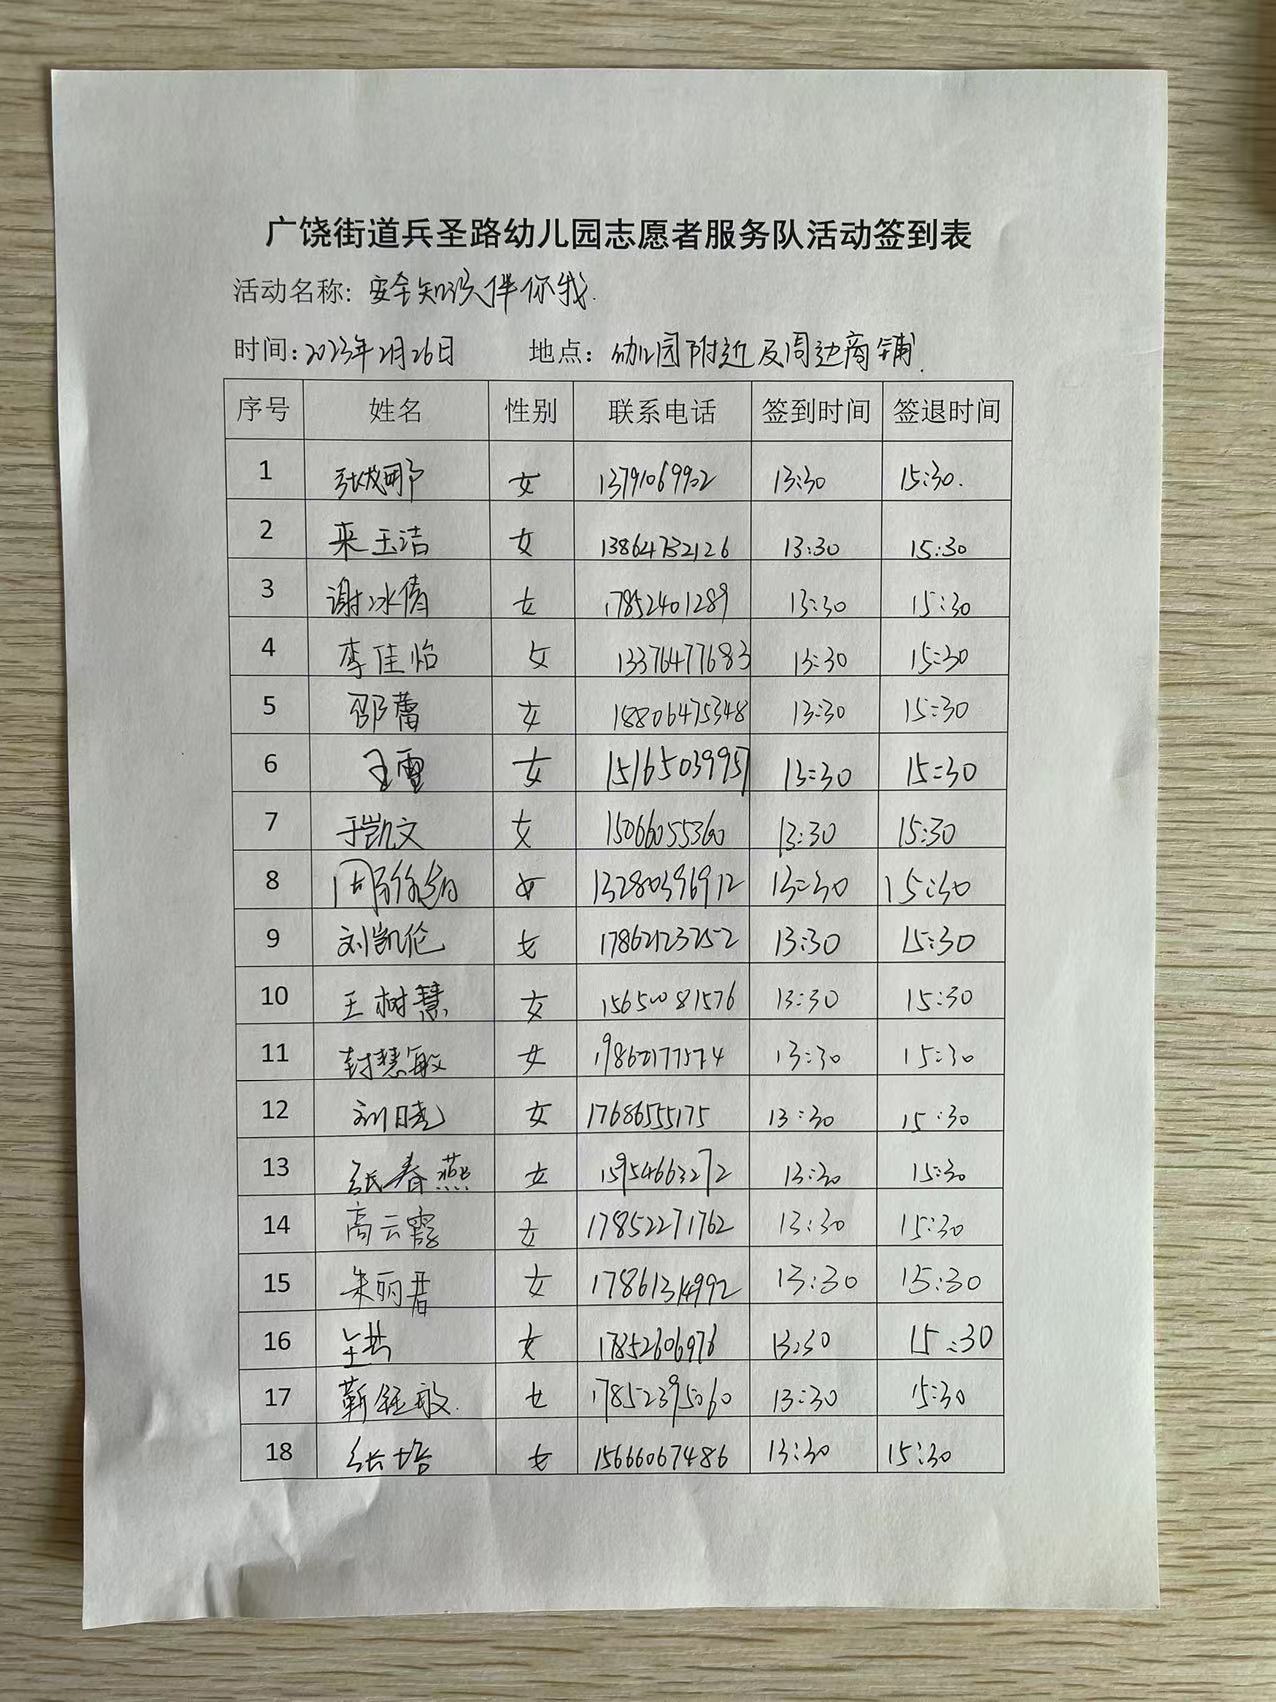 广饶街道兵圣路幼儿园志愿者服务队活动签到表
活动名称: 安全知识伴你我.
时间: 2023年2月26日 地点: 幼儿园附近及周边商铺.
序号 姓名 性别 联系电话 签到时间 签退时间
1 女 13791069902 13:30 15:30.
2 来玉洁 女 13864732126 13:30 15:30
3 谢冰倩 女 17852401289 13:30 15:30
4 李佳怡 女 13376477683 13:30 15:30
5 邵蕾 女 18806475348 13:30 15:30
6 王雪 女 15165039957 13:30 15:30
7 于凯文 女 15066055360 13:30 15:30
8 女 13280396912 13:30 15:30
9 刘凯伦 女 17862123252 13:30 15:30
10 王树慧 女 15650081576 13:30 15:30
11 封慧敏 女 19862177574 13:30 15:30
12 刘晓 女 17686555175 13:30 15:30
13 张春燕 女 15954663272 13:30 15:30
14 高云霞 女 17852271762 13:30 15:30
15 朱丽君 女 17861314992 13:30 15:30
16 女 17852606976 13:30 15:30
17 靳钰敏. 女 17852395060 13:30 15:30
18 张培 女 15666067486 13:30 15:30